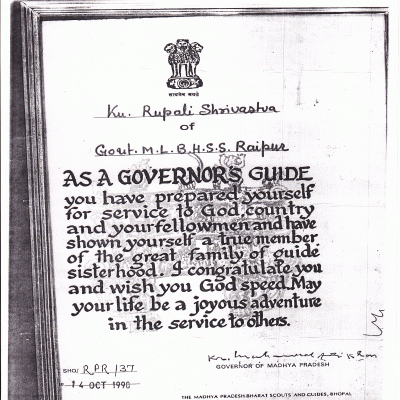 सत्यमेव जयते
Ku. Rupali Shrivastva
of
Govt. M.L.B.H.S.S. Raipur
AS A GOVERNOR'S GUIDE
you have prepared yourself
for service to God, country
and your fellowmen and have
shown yourself a true member
of the great family of guide
sisterhood. I congratulate you
and wish you God speed. May
your life be a joyous adventure
in the service to others.
GOVERNOR OF MADHYA PRADESH
SHQ/ RPR/37
14 OCT 1990
THE MADHYA PRADESH BHARAT SCOUTS AND GUIDES, BHOPAL